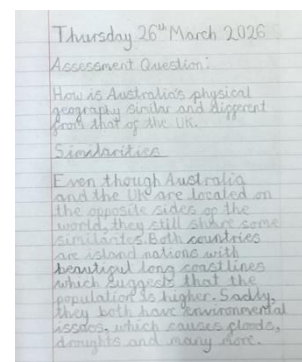 Thursday 26th March 2026
Assessment Question:
How is Australia's physical
geography similar and different
from that of the UK.
Similarities
Even though Australia
and the UK are located on
the opposite sides of the
world, they still share some
similarates. Both countries
are island nations with
beautiful long coastlines
which suggests that the
population is higher. Sadly,
they both have environmental
issues, which causes floods,
droughts and many more.